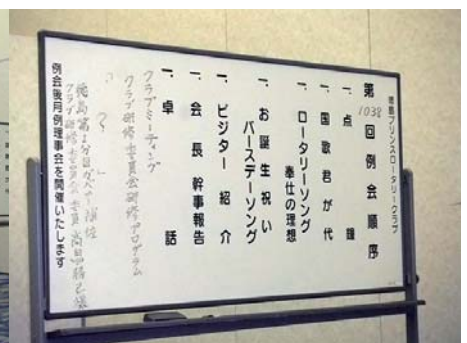 徳島プリンスロータリークラブ
第1038回例会順序
一、点鐘
一、国歌君が代
一、ロータリーソング
奉仕の理想
一、お誕生祝い
バースデーソング
一、ビジター紹介
一、会長幹事報告
一、卓話
クラブミーティング
クラブ研修委員会研修プログラム
徳島第2分区ガバナー補佐
クラブ研修委員会委員
例会後月例理事会を開催いたします